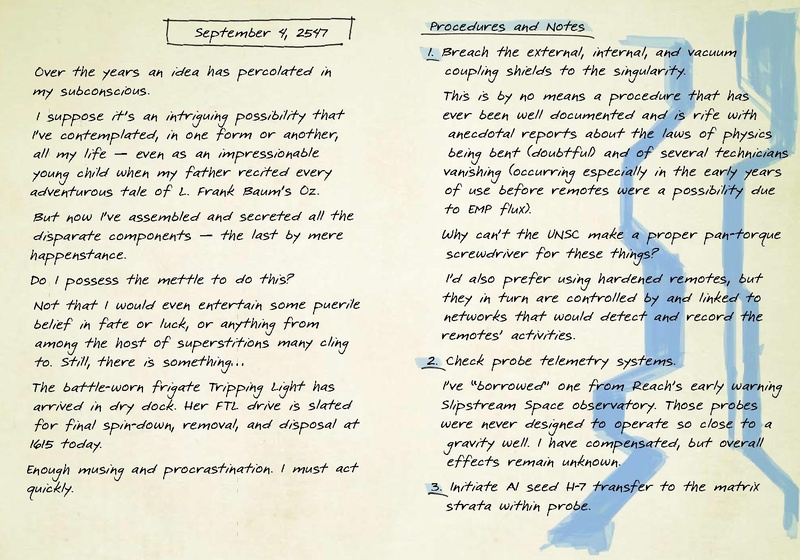 September 4, 2547
Over the years an idea has percolated in
my subconscious.
I suppose it's an intriguing possibility that
I've contemplated, in one form or another,
all my life — even as an impressionable
young child when my father recited every
adventurous tale of L. Frank Baum's Oz.
But now I've assembled and secreted all the
disparate components — the last by mere
happenstance.
Do I possess the mettle to do this?
Not that I would even entertain some puerile
belief in fate or luck, or anything from
among the host of superstitions many cling
to. Still, there is something...
The battle-worn frigate Tripping Light has
arrived in dry dock. Her FTL drive is slated
for final spin-down, removal, and disposal at
1615 today.
Enough musing and procrastination. I must act
quickly.
Procedures and Notes
1. Breach the external, internal, and vacuum
coupling shields to the singularity.
This is by no means a procedure that has
ever been well documented and is rife with
anecdotal reports about the laws of physics
being bent (doubtful) and of several technicians
vanishing (occurring especially in the early years
of use before remotes were a possibility due
to EMP flux).
Why can't the UNSC make a proper pan-torque
screwdriver for these things?
I'd also prefer using hardened remotes, but
they in turn are controlled by and linked to
networks that would detect and record the
remotes' activities.
2. Check probe telemetry systems.
I've "borrowed" one from Reach's early warning
Slipstream Space observatory. Those probes
were never designed to operate so close to a
gravity well. I have compensated, but overall
effects remain unknown.
3. Initiate AI seed H-7 transfer to the matrix
strata within probe.